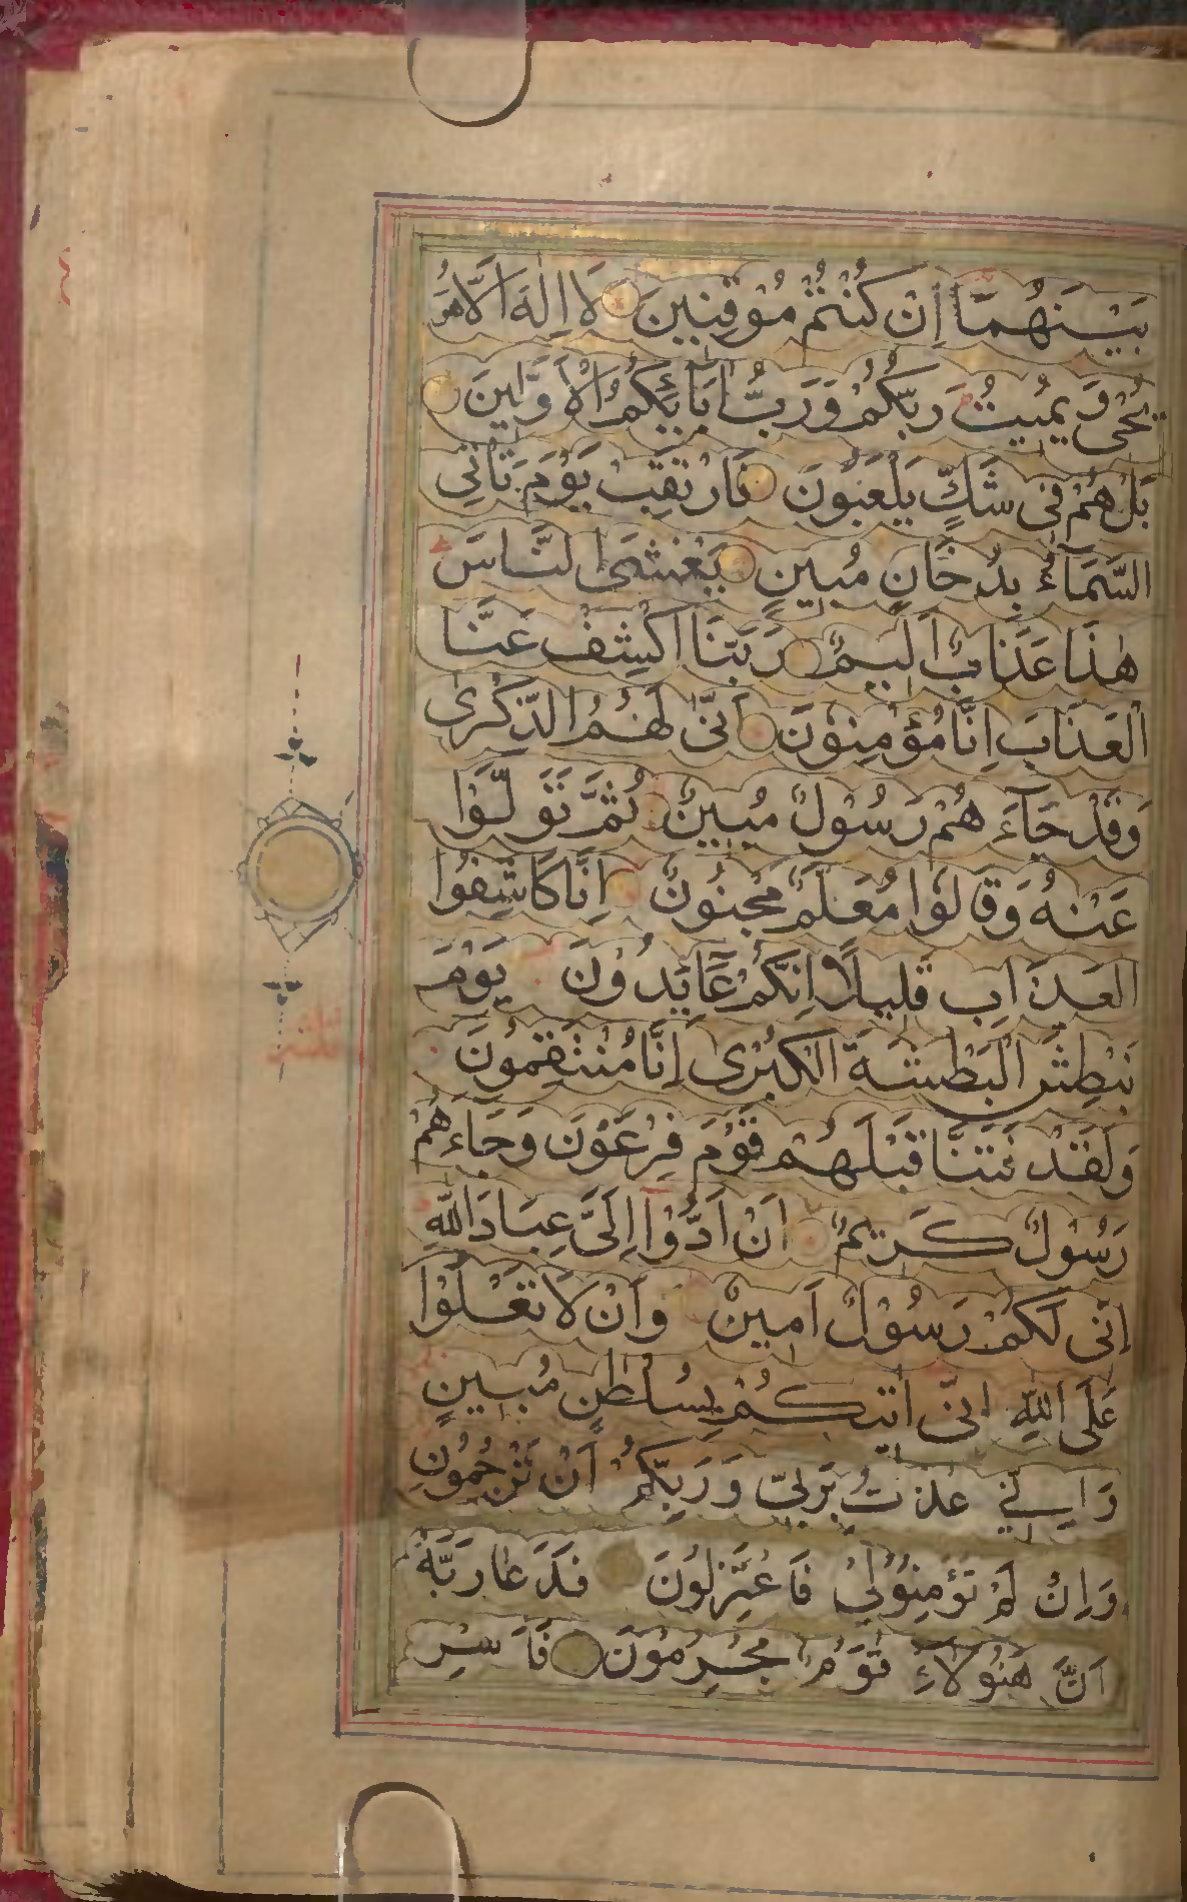 بَيْنَهُمَا اِنْ كُنْتُمْ مُوْقِنِينَ لَا اِلٰهَ اِلَّا هُوَ
يُحْيٖ وَيُمِيتُ رَبُّكُمْ وَرَبُّ اٰبَائِكُمُ الْاَوَّلِينَ
بَلْ هُمْ فِى شَكٍّ يَلْعَبُونَ فَارْتَقِبْ يَوْمَ تَأْتِى
السَّمَآءُ بِدُخَانٍ مُبِينٍ يَغْشَى النَّاسَ
هٰذَا عَذَابٌ اَلِيمٌ رَبَّنَا اكْشِفْ عَنَّا
الْعَذَابَ اِنَّا مُؤْمِنُوْنَ اَنّٰى لَهُمُ الذِّكْرٰى
وَقَدْ جَآءَهُمْ رَسُوْلٌ مُبِينٌ ثُمَّ تَوَلَّوْا
عَنْهُ وَقَالُوْا مُعَلَّمٌ مَجْنُوْنٌ اِنَّا كَاشِفُوا
الْعَذَابِ قَلِيلًا اِنَّكُمْ عَآئِدُوْنَ يَوْمَ
نَبْطِشُ الْبَطْشَةَ الْكُبْرٰى اِنَّا مُنْتَقِمُونَ
وَلَقَدْ فَتَنَّا قَبْلَهُمْ قَوْمَ فِرْعَوْنَ وَجَآءَهُمْ
رَسُوْلٌ كَرِيمٌ اَنْ اَدُّوْا اِلَىَّ عِبَادَ اللّٰهِ
اِنِّى لَكُمْ رَسُوْلٌ اَمِينٌ وَاَنْ لَا تَعْلُوْا
عَلَى اللّٰهِ اِنِّى اٰتِيكُمْ بِسُلْطٰنٍ مُبِينٍ
وَاِنِّي عُذْتُ بِرَبِّى وَرَبِّكُمْ اَنْ تَرْجُمُوْنِ
وَاِنْ لَمْ تُؤْمِنُوْا لِى فَاعْتَزِلُونَ فَدَعَا رَبَّهُ
اَنَّ هٰٓؤُلَاءِ قَوْمٌ مُجْرِمُوْنَ فَاَسْرِ